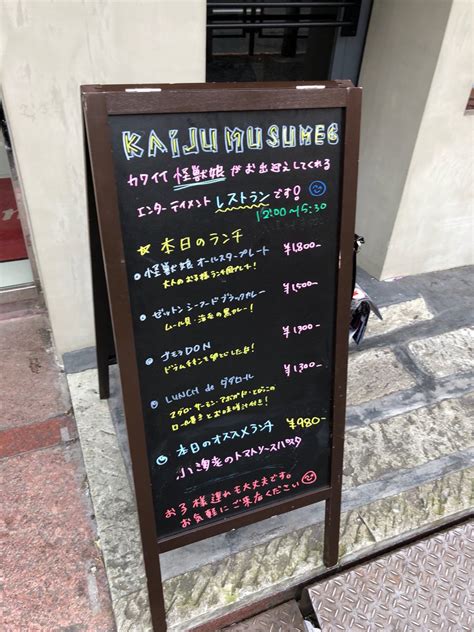 KAIJU MUSUMEG
カワイイ 怪獣娘がお出迎えしてくれる
エンターテイメント レストランです!
12:00〜15:30
☆本日のランチ
怪獣娘 オールスタープレート ¥1,800-
大人のお子様ランチ
ゼットン シーフードブラックカレー ¥1,500-
ムール貝・海老の黒カレー!
ゴモラDON ¥1,300-
LUNCH de ダダロール ¥1,300-
マグロ・サーモン・アボカド・とびっこの
ロール寿司とお味噌汁付き!
本日のオススメランチ ¥980-
小海老のトマトソースパスタ
お子様連れも大丈夫です。
お気軽にご来店ください